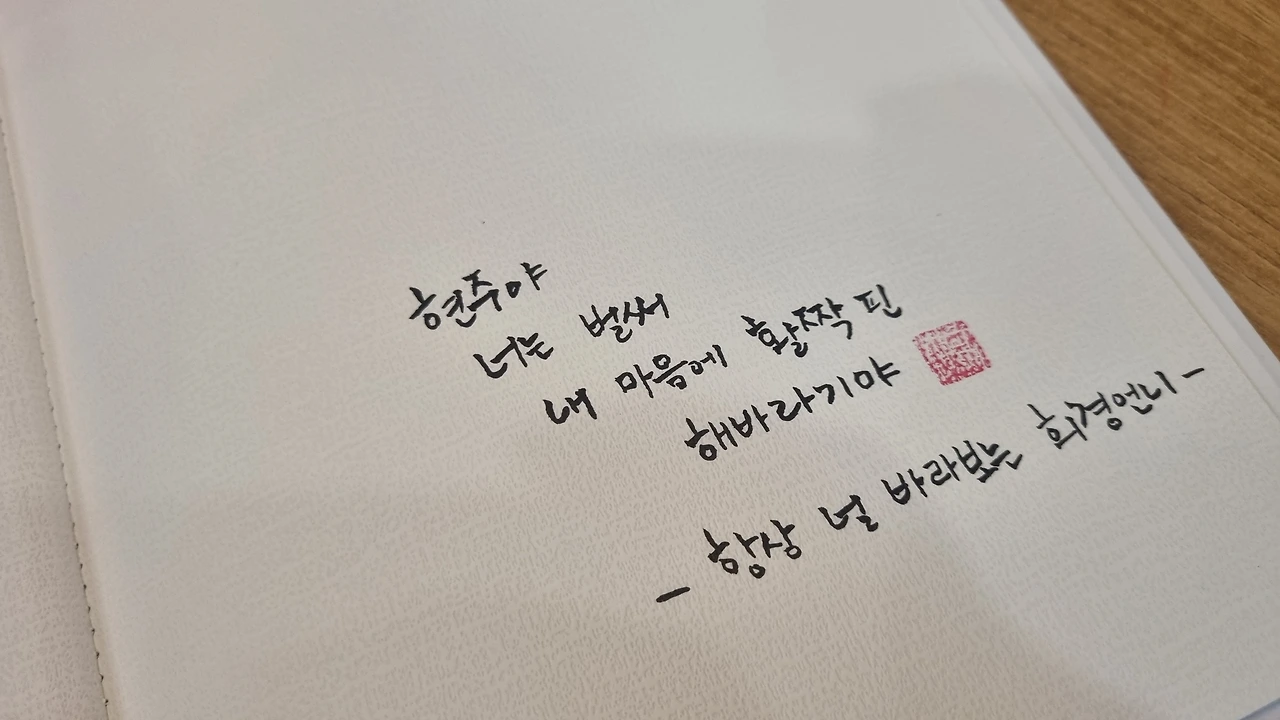 현주야
너는 벌써
내 마음에 활짝 핀
해바라기야
- 항상 널 바라보는 희경언니 -